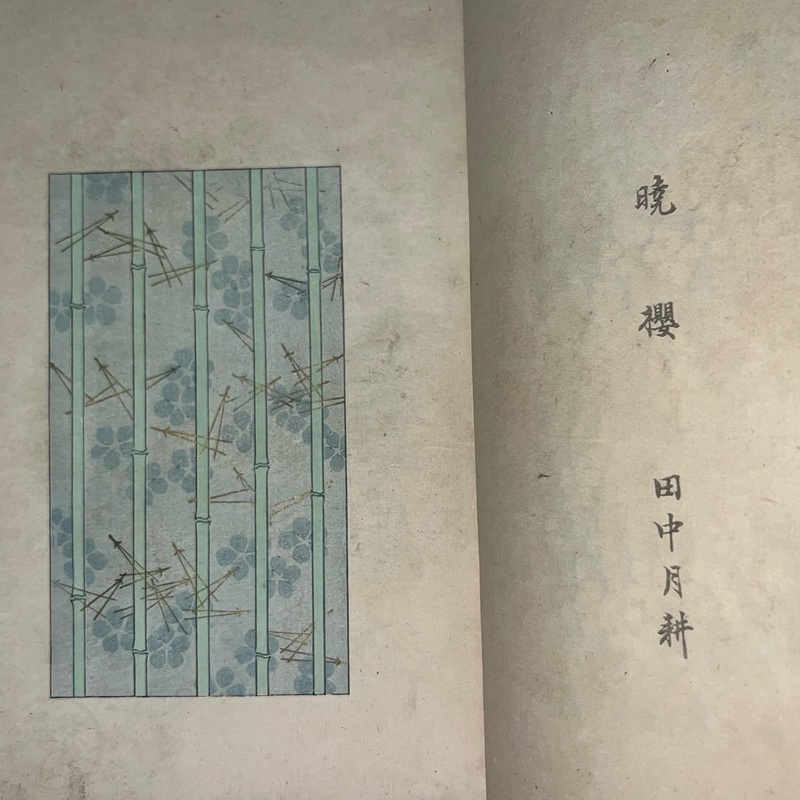 曉櫻
田中月耕